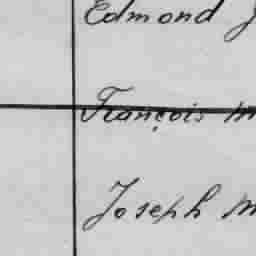 Edmond J
François m
Joseph m